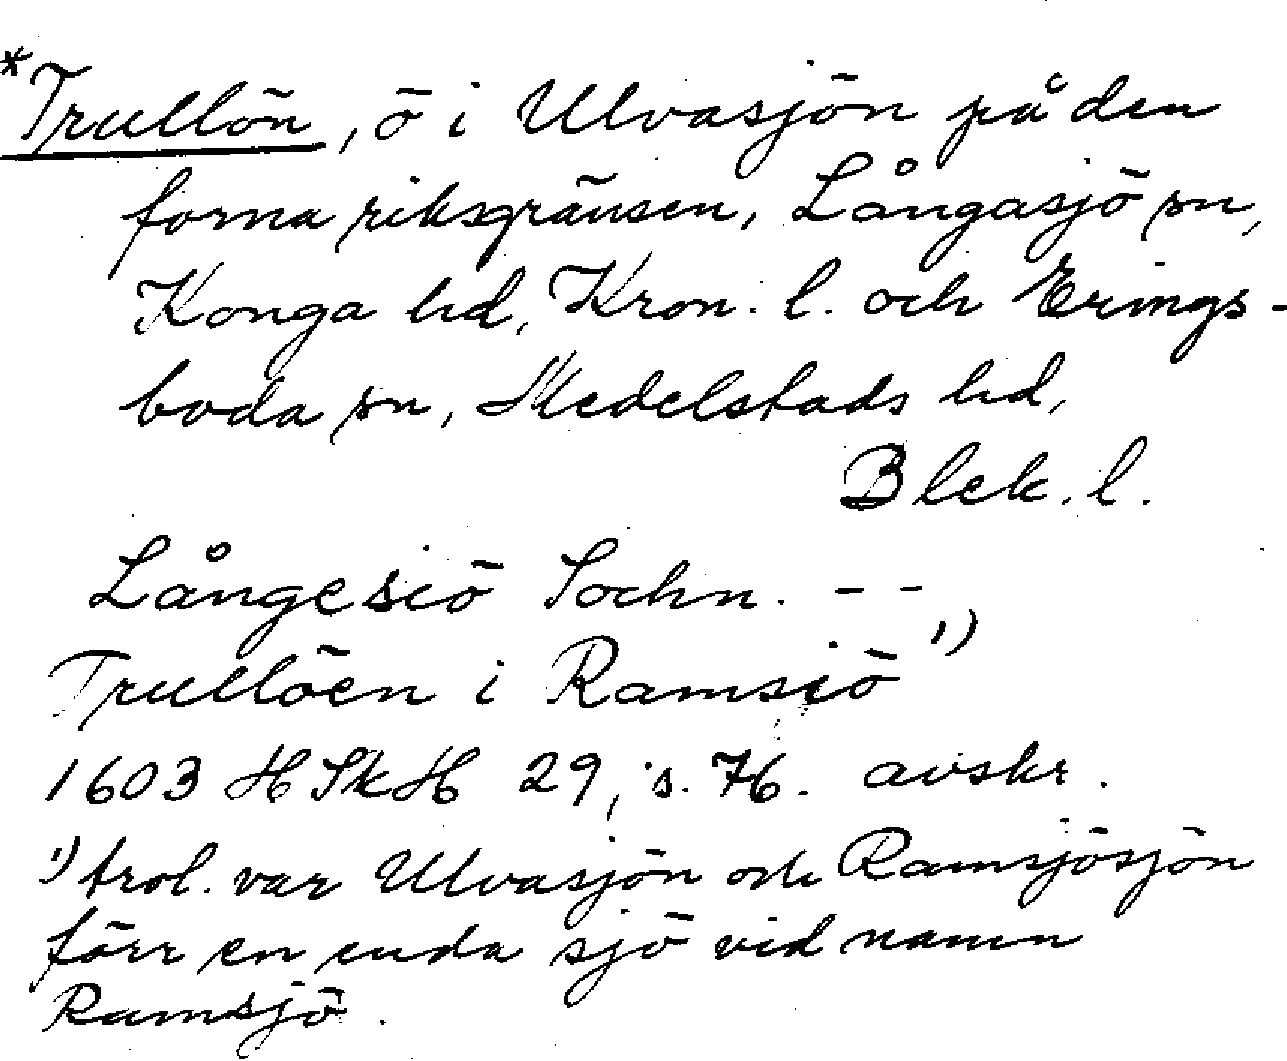 *Trullön, ö i Ulvasjön på den
forna riksgränsen, Långasjö sn,
Konga hd, Kron. l. och Erings-
boda sn, Medelstads hd,
Blek. l.
Långesiö Sochn. - -
Trullöen i Ramsiö 1)
1603 HSkH 29, s. 76. avskr.
1) trol. var Ulvasjön och Ramsjösjön
förr en enda sjö vid namn
Ramsjö.